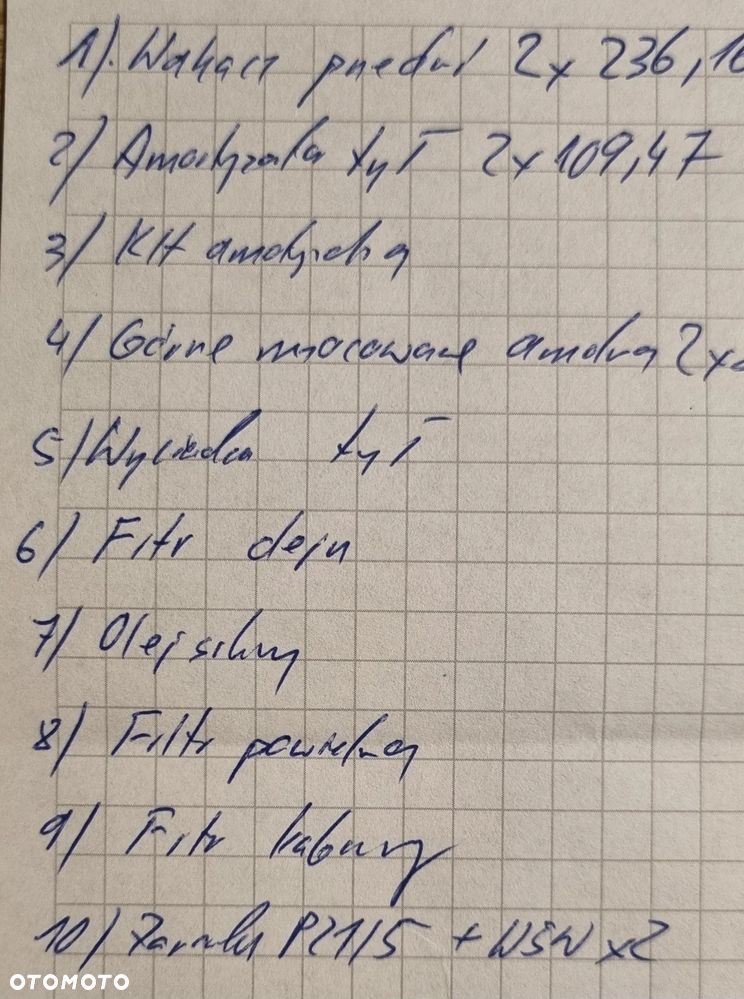 1). Wahacz przedni 2x 236,16
2) Amortyzator tył 2x109,47
3) Kit amortyzatora
4) Górne mocowanie amora 2x
5) Wycieraczka tył
6) Filtr oleju
7) Olej silny
8) Filtr powietrza
9) Filtr kabiny
10) Żarówka P21/5 + W5W x2
OTOMOTO